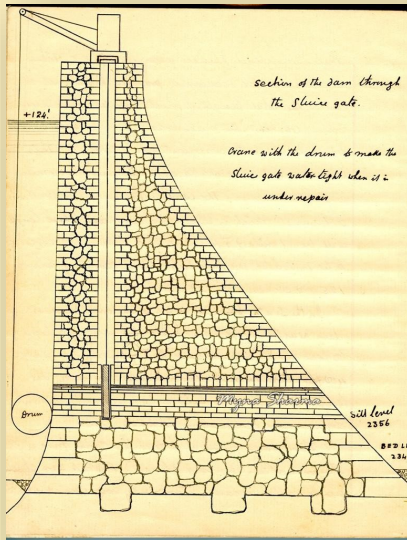 section of the dam through
the Sluice gate.
+124'
Crane with the drum to make the
Sluice gate water tight when it is
under repair
Drum
Sill level
2356
BED LE
234